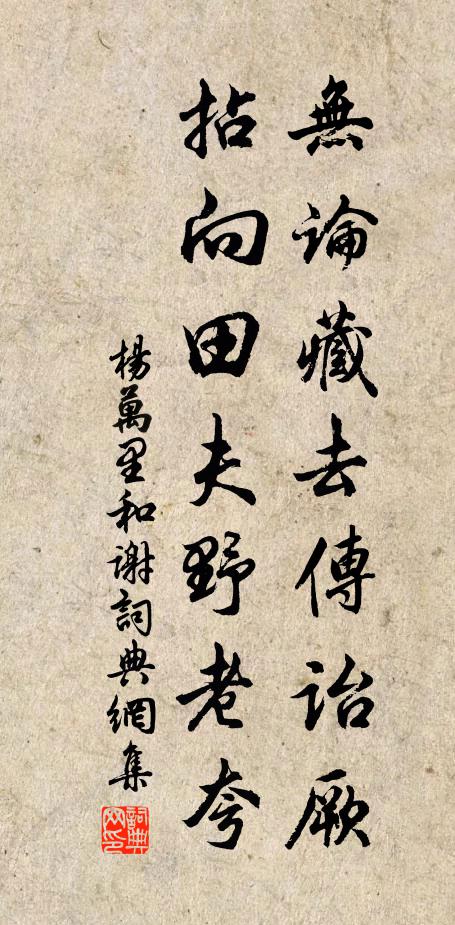 無論藏去傳詒厥
拈向田夫野老夸
楊萬里和謝詞典網集
詞典网印